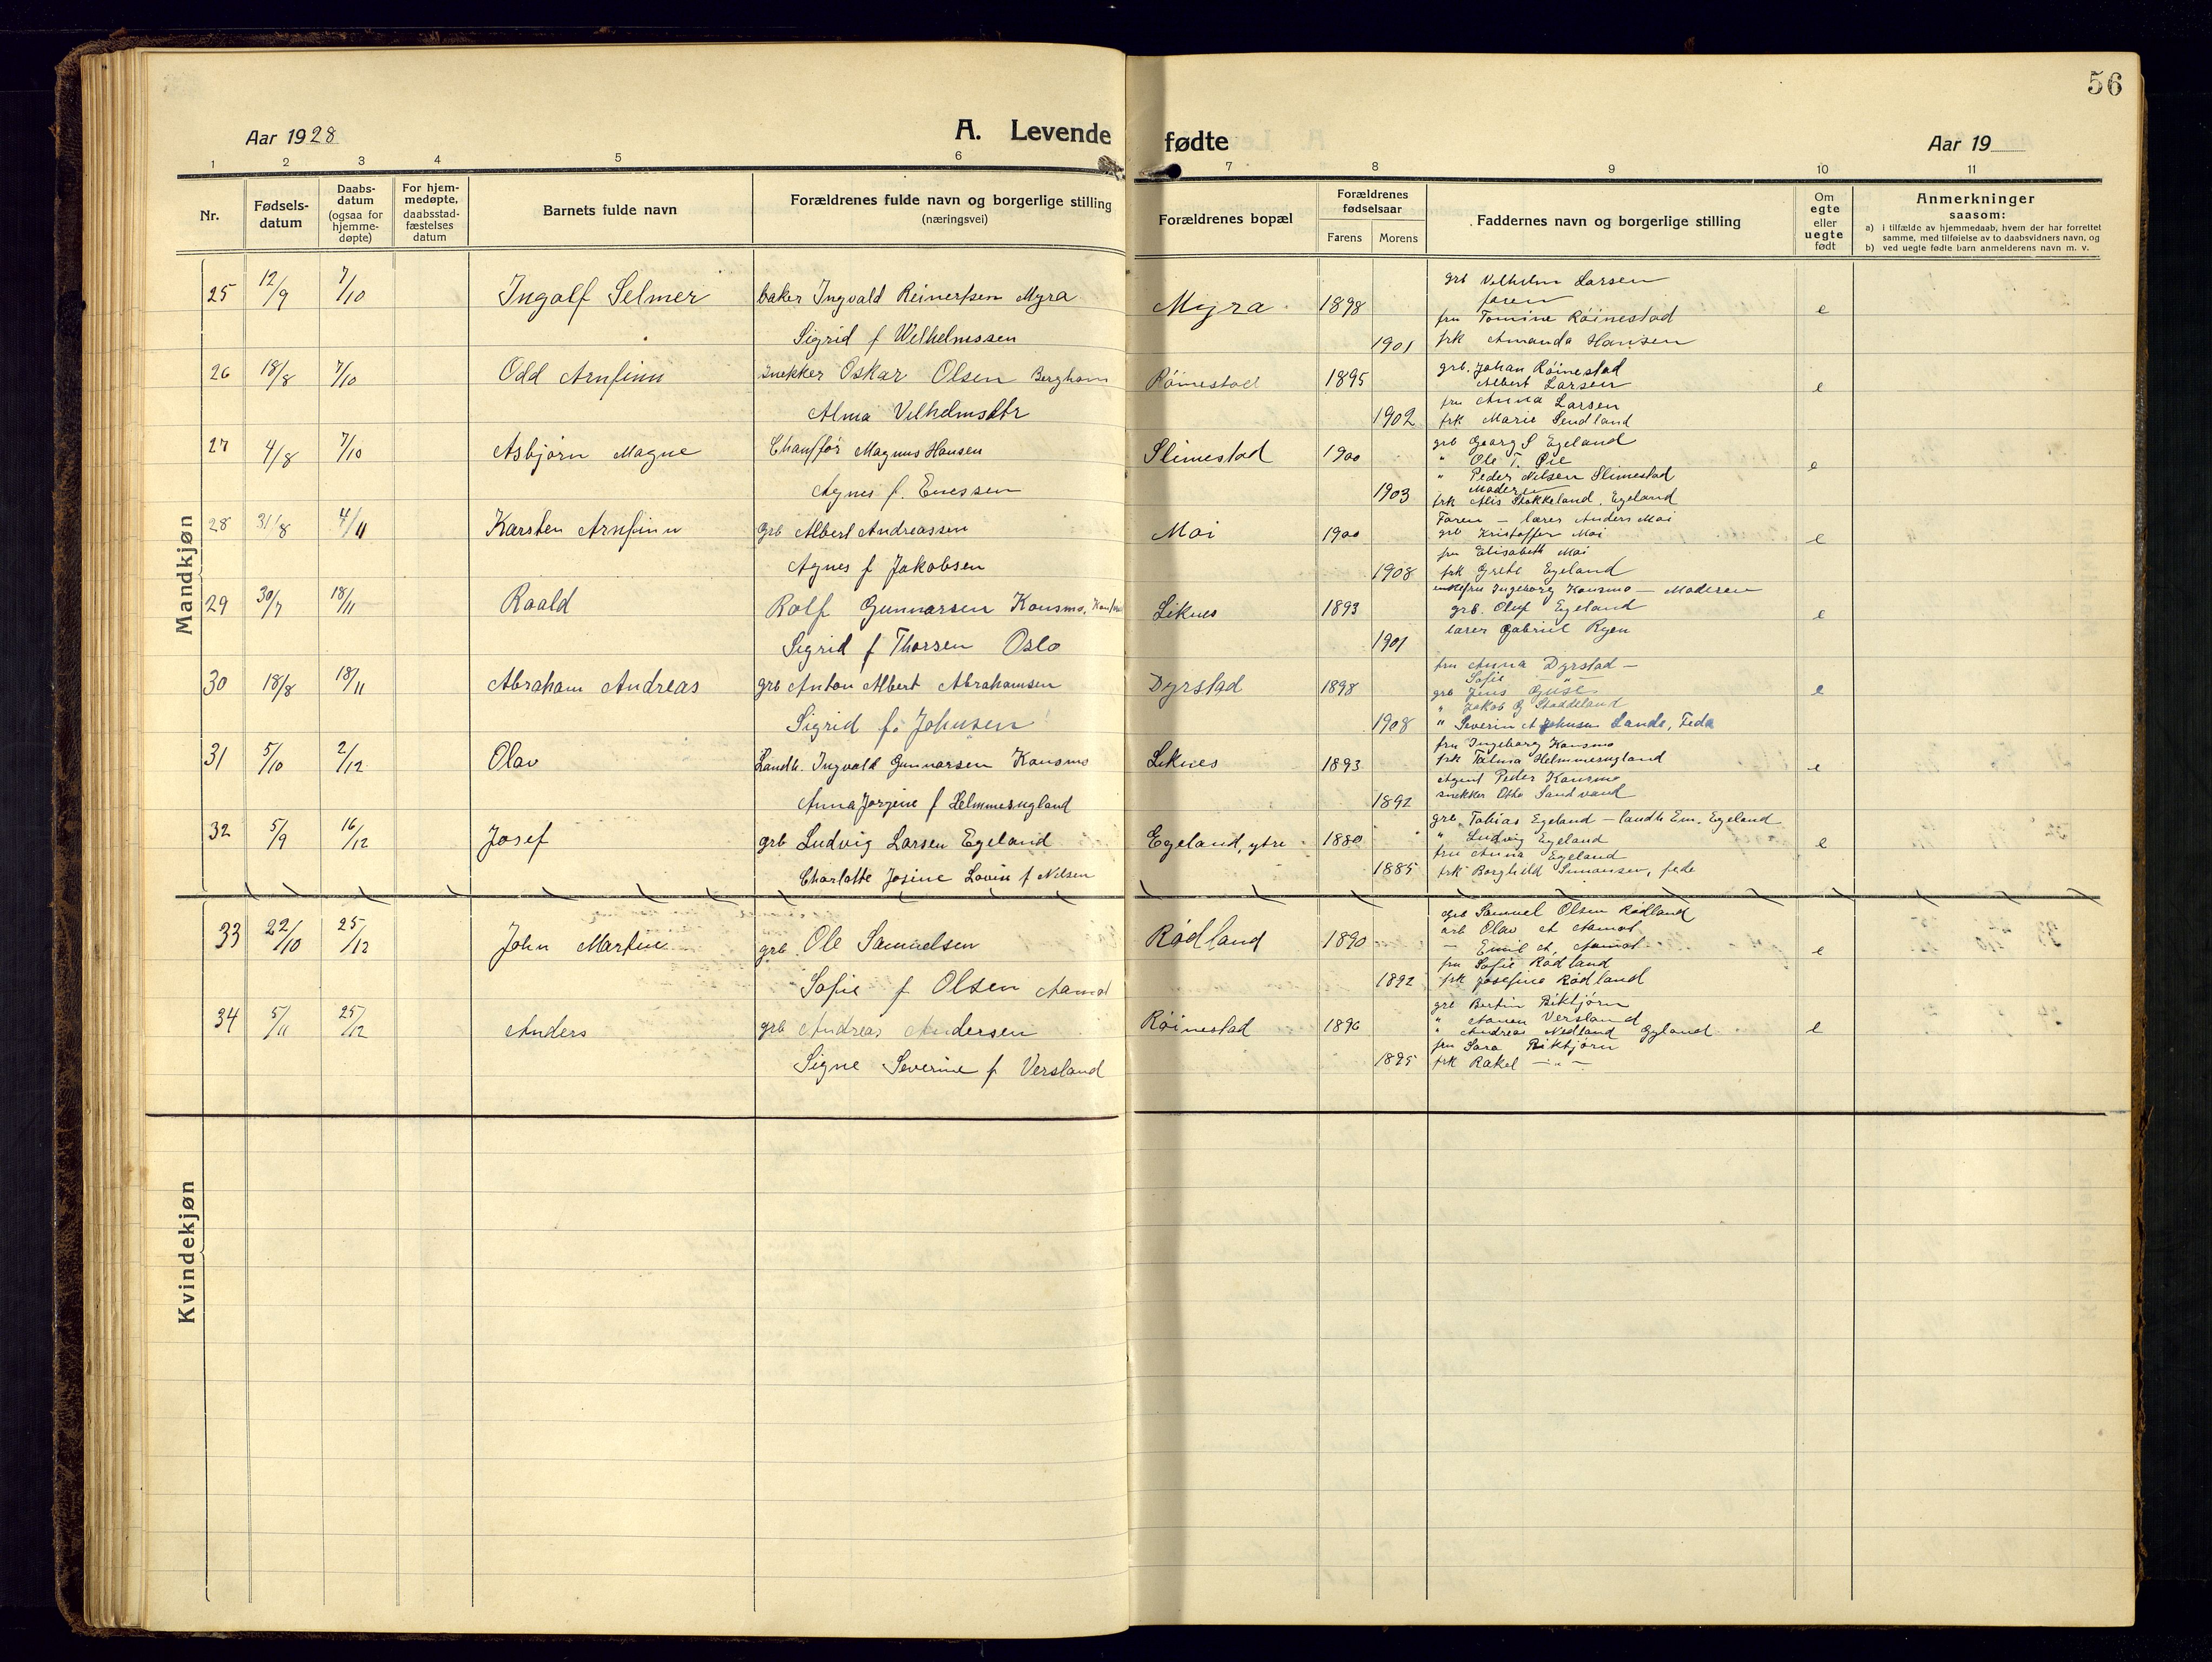 56
Aar 1928
A. Levende fødte
Aar 19
1 2 3 4 5 6 7 8 9 10 11
Nr.
Fødsels-
datum
Daabs-
datum
(ogsaa for
hjemme-
døpte)
For hjem-
medøpte,
daabsstad-
fæstelses
datum
Barnets fulde navn
Forældrenes fulde navn og borgerlige stilling
(næringsvei)
Forældrenes bopæl
Forældrenes
fødselsaar
Farens Morens
Faddernes navn og borgerlige stilling
Om
egte
eller
uegte
født
Anmerkninger
saasom:
a) i tilfælde av hjemmedaab, hvem der har forrettet
samme, med tilføielse av to daabsvidners navn, og
b) ved uegte fødte barn anmelderens navn m. v.
Mandkjøn
25 12/9 7/10 Ingolf Selmer baker Ingvald Reinertsen Myra Myra 1898 e
Sigrid f Wilhelmssen 1901
grb Vilhelm Larsen
faren
fru Tomine Röinestad
frk Amanda Hansen
26 18/8 7/10 Odd Arnfinn snekker Oskar Olsen Berghom Röinestad 1895 e
Alma Vilhelmsdtr 1902
grb. Johan Röinestad
Albert Larsen
fru Anna Larsen
frk Marie Sendland
27 4/8 7/10 Asbjörn Magne Chauffør Magnus Hansen Slimestad 1900 e
Agnes f. Enessen 1903
grb Georg S Egeland
" Ole T. Øie
" Peder Nilsen Slimestad
Moderen
frk Alis Stokkeland, Egeland
28 31/8 4/11 Karsten Arnfinn grb Albert Andreassen Moi 1900 e
Agnes f Jakobsen 1908
Faren — lærer Anders Moi
grb Kristoffer Moi
fru Elisabeth Moi
frk Grete Egeland
29 30/7 18/11 Roald Rolf Gunnarsen Konsmo, Liknes 1893 e
Sigrid f Thorsen Oslo 1901
Ingeborg Konsmo — Moderen
grb. Oluf Egeland
lærer Gabriel Ryen
30 18/8 18/11 Abraham Andreas grb Anton Albert Abrahamsen Dyrstad 1898 e
Sigrid f. Johnsen 1908
fru Anna Dyrstad —
Sofie — " —
grb Jens Guse
" Jakob G Stoddeland
" Severin A Johnsen Lande, Feda
31 5/10 2/12 Olav Landh. Ingvald Gunnarsen Konsmo Liknes 1893 e
Anna Jorgine f Helmmesugland 1892
fru Ingeborg Konsmo
frk Talma Helmmesugland
Agent Peder Konsmo
snekker Otto Sandvand
32 5/9 16/12 Josef grb Ludvig Larsen Egeland Egeland, ytre 1880 e
Charlotte Josine Lovise f Nilsen 1885
grb Tobias Egeland — landh Em. Egeland
" Ludvig Egeland
fru Anna Egeland
frk Borghild Simonsen, feda
33 22/10 25/12 John Martin grb Ole Samuelsen Rødland 1890 e
Sofie f Olsen Aamot 1892
grb Samuel Olsen Rødland
arb Olav A Aamot
— Emil A. Aamot
fru Sofie Rødland
frk Josefine Rødland
34 5/11 25/12 Anders grb Andreas Andersen Röinestad 1896 e
Signe Severine f Versland 1895
grb Bertin Birktjörn
" Aanen Versland
" Andreas Nedland Gyland
fru Sara Birktjörn
frk Rakel — " —
Kvindekjøn